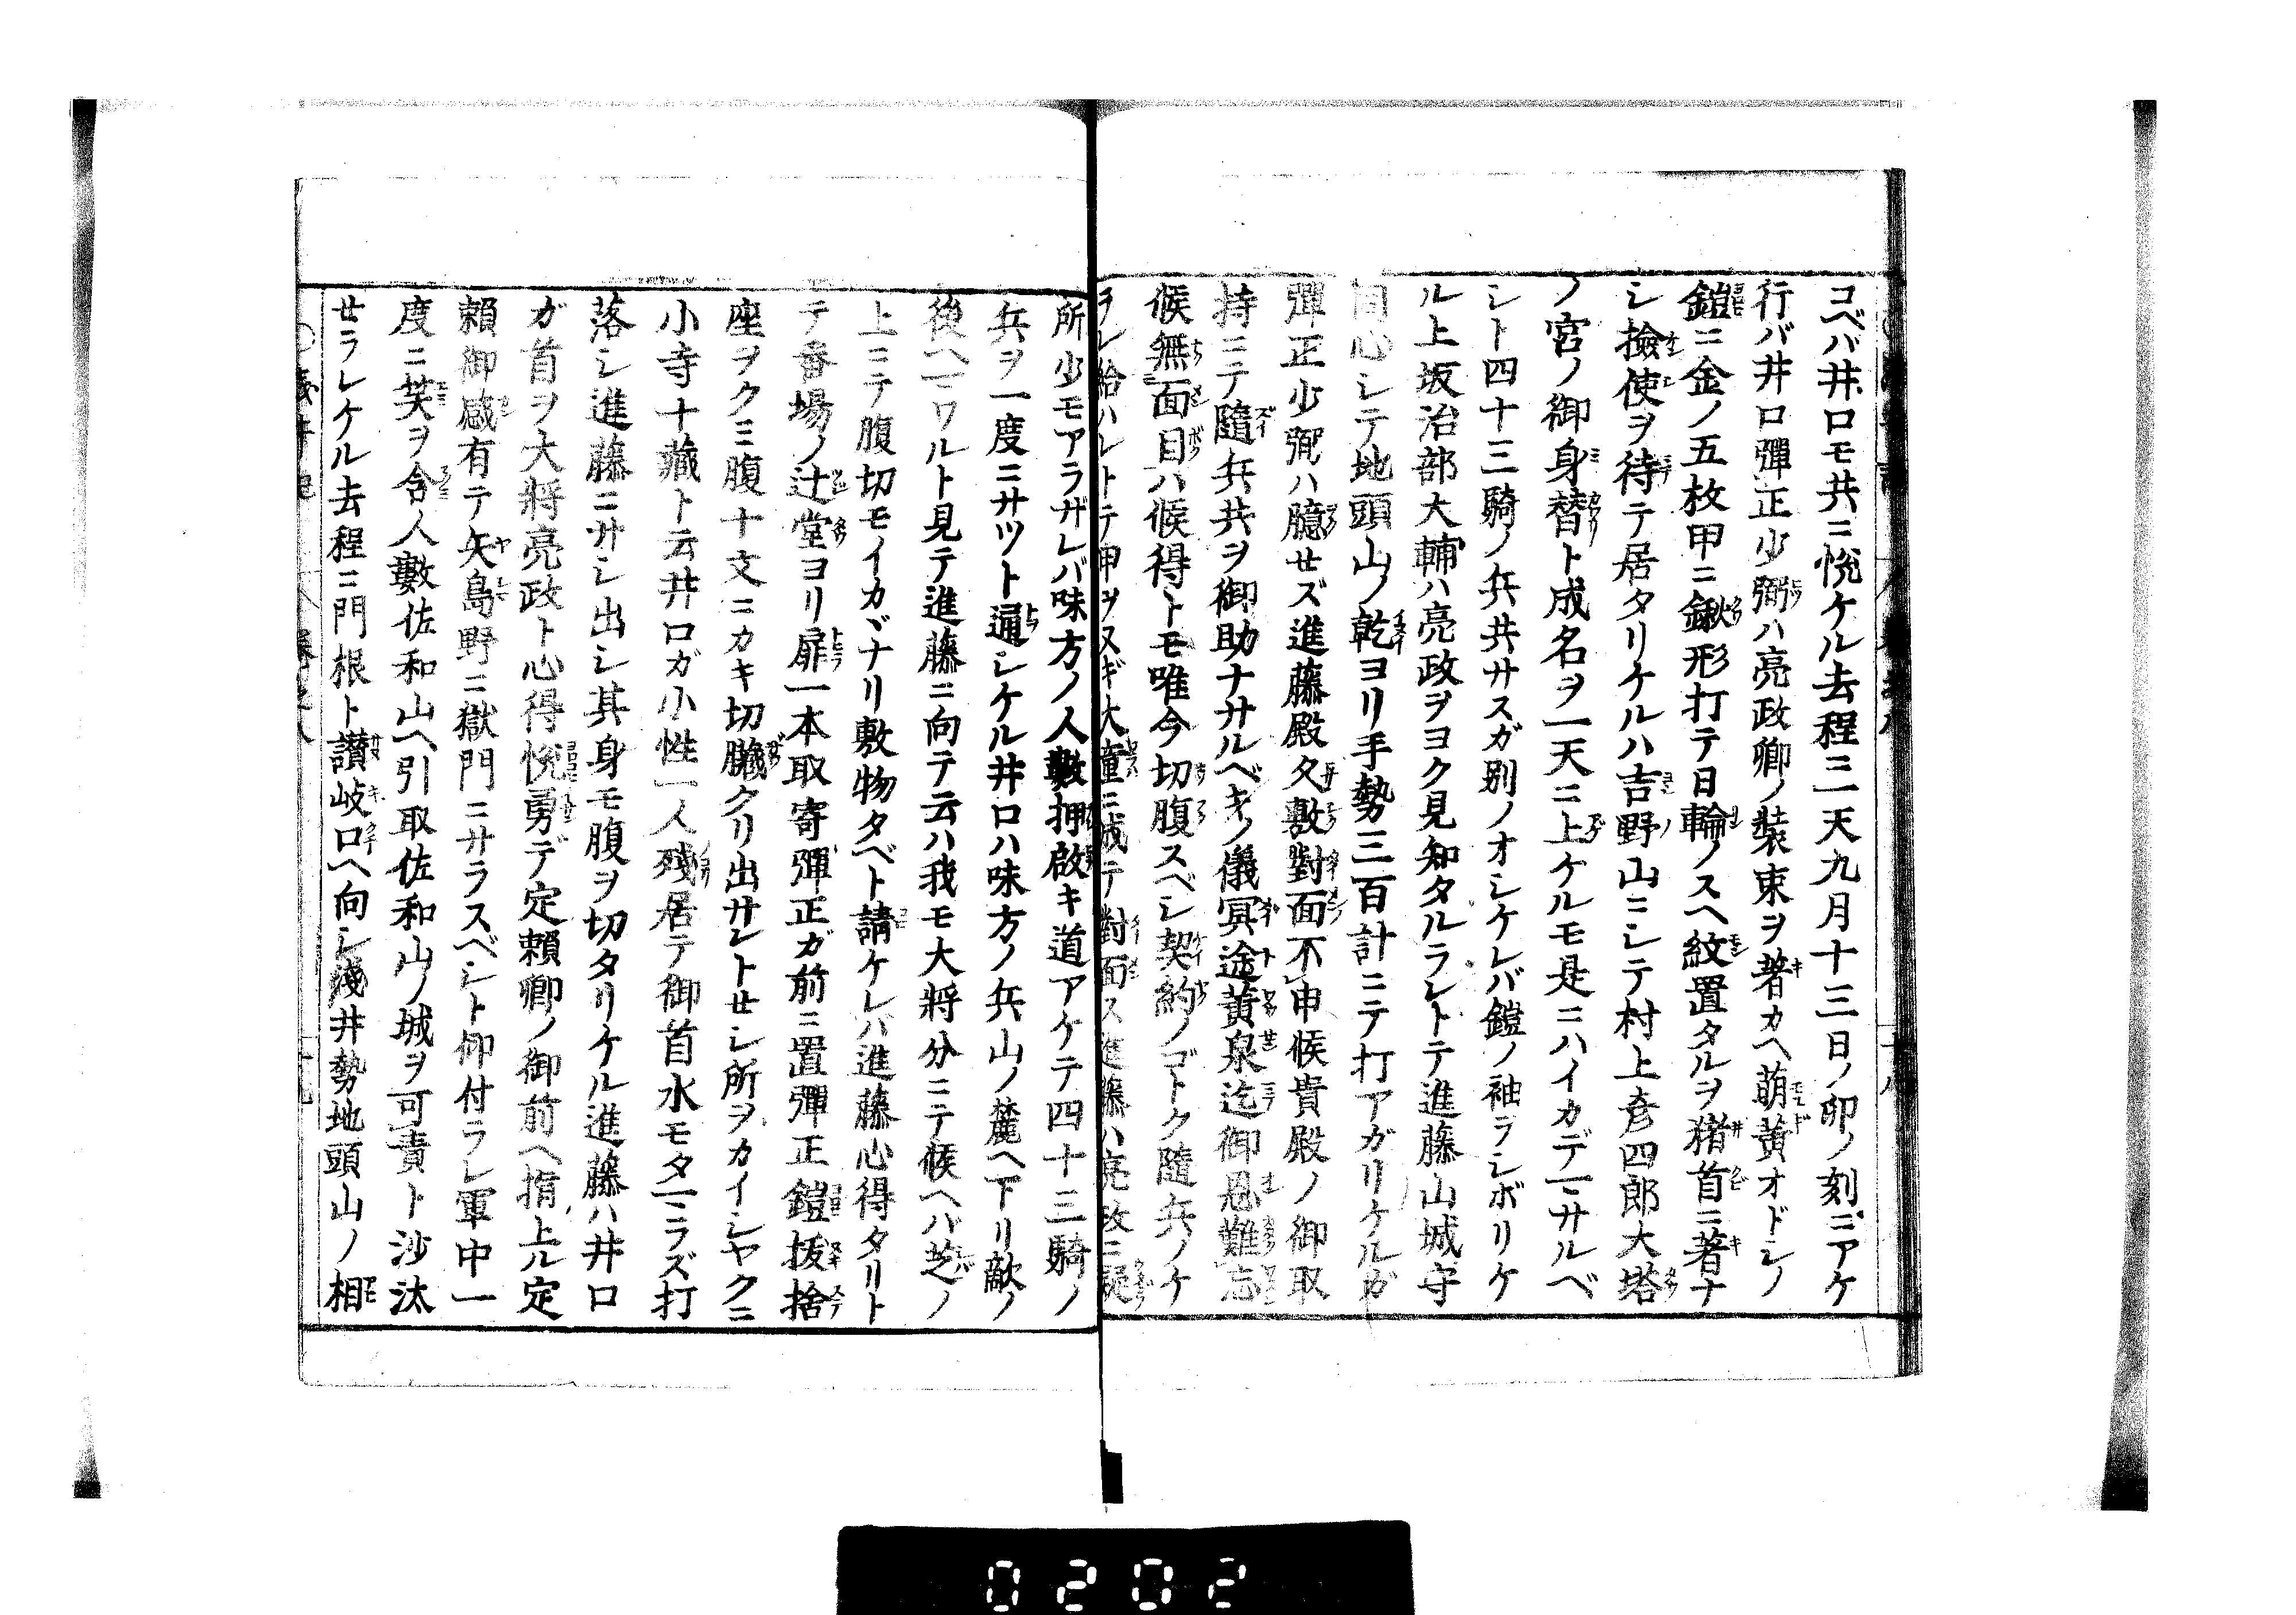 コベバ井口モ共ニ悦ケル去程ニ天九月十三日ノ卯ノ刻ニアケ
行バ井口彈正少弼ハ亮政卿ノ装束ヲ著カヘ萌黄オドシノ
鎧ニ金ノ五枚甲ニ鍬形打テ日輪ノスヘ紋置タルヲ猪首ニ著ナ
シ撿使ヲ待テ居タリケルハ吉野山ニシテ村上彦四郎大塔
ノ宮ノ御身替ト成名ヲ一天ニ上ケルモ是ニハイカデマサルベ
シト四十三騎ノ兵共サスガ別ノオシケレバ鎧ノ袖ラシボリケ
ル上坂治部大輔ハ亮政ヲヨク見知タルラントテ進藤山城守
同心シテ地頭山ノ乾ヨリ手勢三百計ニテ打アガリケルガ
彈正少弼ハ臆セズ進藤殿久敷對面不申候貴殿ノ御取
持ニテ隨兵共ヲ御助ナサルベキノ儀冥途黄泉迄御恩難忘
候無面目ハ候得トモ唯今切腹スベシ契約ノゴトク隨兵ノケ
ヲレ給ハレトテ甲ヲヌギ大童ニ成テ對面ス進藤ハ亮政ニ疑
所少モアラザレバ味方ノ人數押啟キ道アケテ四十三騎ノ
兵ヲ一度ニサツト通シケル井口ハ味方ノ兵山ノ麓ヘ下リ敵ノ
後ヘマワルト見テ進藤ニ向テ云ハ我モ大將分ニテ候ヘバ芝ノ
上ニテ腹切モイカヾナリ敷物タベト請ケレバ進藤心得タリト
テ番場ノ辻堂ヨリ扉一本取寄彈正ガ前ニ置彈正鎧拔捨
座ヲクミ腹十文ニカキ切臓クリ出サントセシ所ヲカイシヤクニ
小寺十藏ト云井口ガ小性一人殘居テ御首水モタマラズ打
落シ進藤ニサシ出シ其身モ腹ヲ切タリケル進藤ハ井口
ガ首ヲ大將亮政ト心得悦勇デ定頼卿ノ御前ヘ捎上ル定
頼御感有テ矢島野ニ獄門ニサラスベシト仰付ラレ軍中一
度ニ笑ヲ含人數佐和山ヘ引取佐和山ノ城ヲ可責ト沙汰
セラレケル去程ニ門根ト讃岐口ヘ向シ淺井勢地頭山ノ相